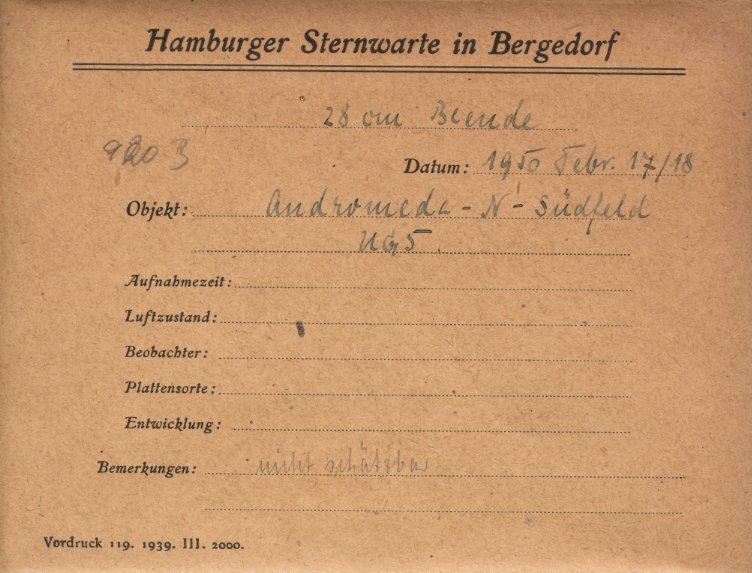 Hamburger Sternwarte in Bergedorf
28 cm Blende
9203
Datum: 1950 Febr. 17/18
Objekt: Andromeda-N-Südfeld
UG5.
Aufnahmezeit:
Luftzustand:
Beobachter:
Plattensorte:
Entwicklung:
Bemerkungen: nicht schätzbar
Vordruck 119. 1939. III. 2000.